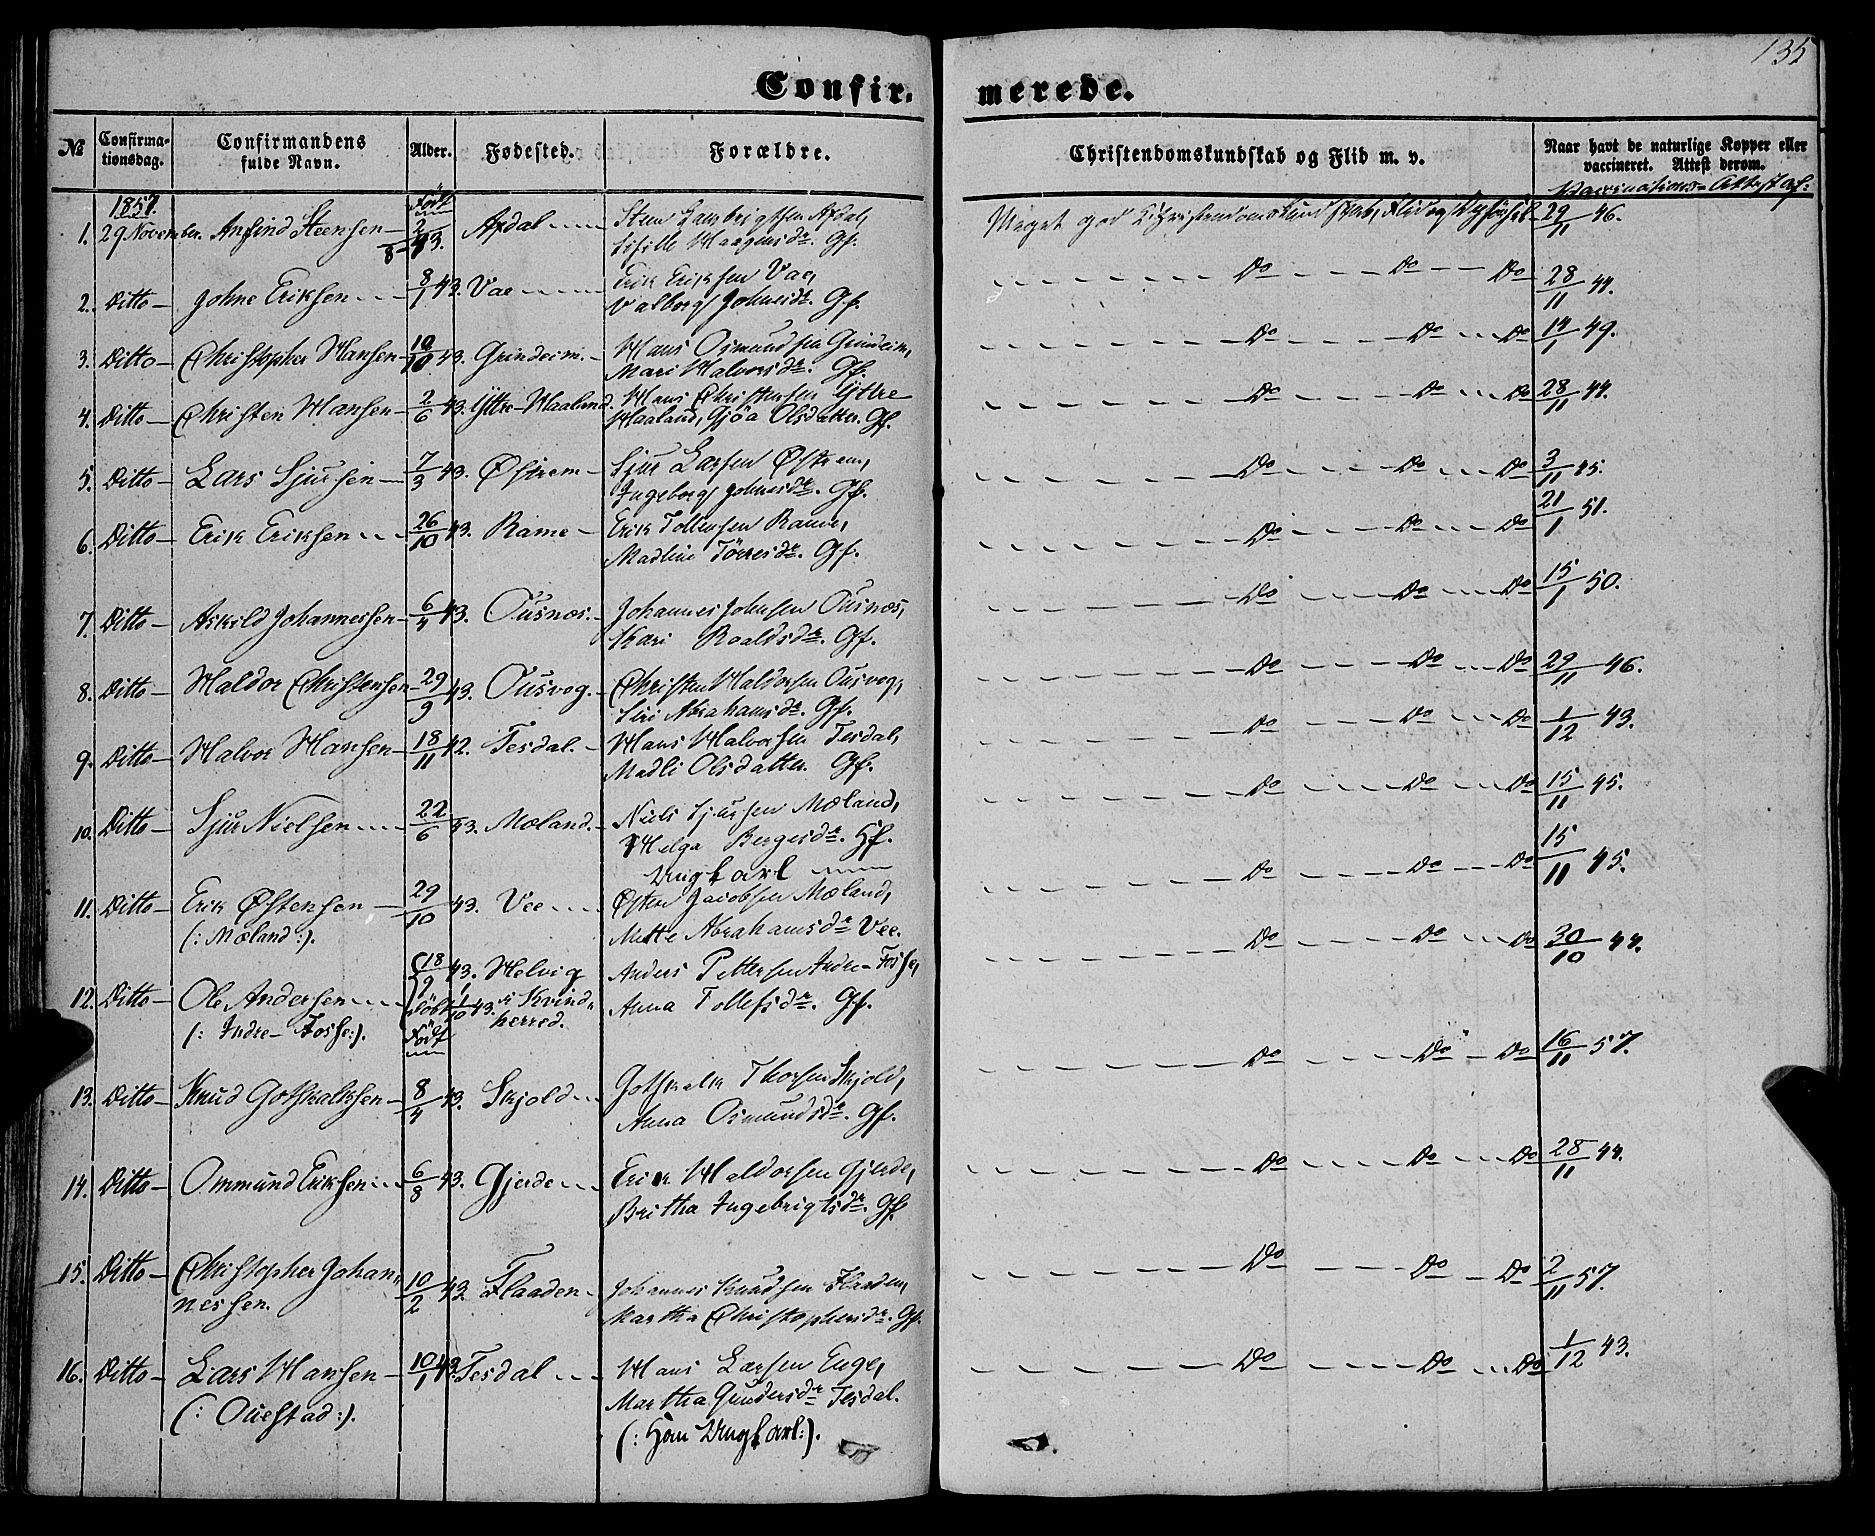 135
Confirmerede.
№ Confirmationsdag. Confirmandens fulde Navn. Alder. Fødested. Forældre. Christendomskundskab og Flid m. v. Naar havt de naturlige Kopper eller vaccineret. Attest derom.
Vaccinations-Attest af:
1857. Født
1. 29 November. Anfind Steensen 2/8 43. Axdal Steen Axdal, Gf. Meget god Christendomskundskab, Flid og 29/11 46.
2. Ditto Johne Eriksen 8/1 43. Vae Erik Eriksen Vae, Valborg Johnesdr. Gf. Do Do Do 28/11 44.
3. Ditto Christopher Hansen 10/10 43. Grindeim. Hans Osmundsen Grindeim, Mari Halvorsdr. Gf. Do Do Do 14/1 49.
4. Ditto Christen Hansen 2/6 43. Yttre-Haaland. Hans Christensen Yttre-Haaland, Gjøa Olsdatter. Gf. Do Do Do 28/11 44.
5. Ditto Lars Sjursen 7/3 43. Østrem Sjur Larsen Østrem, Ingeborg Johnesdr. Gf. Do Do Do 3/11 45.
6. Ditto Erik Eriksen 26/10 43. Rame Erik Tollevsen Rame, Madline Tørresdr. Gf. Do Do Do 21/1 51.
7. Ditto Askild Johannessen 6/4 43. Ousnæs. Johannes Johnsen Ousnæs, Kari Roaldsdr. Gf. Do Do Do 15/1 50.
8. Ditto Haldor Christensen 29/9 43. Ousvog. Christen Haldorsen Ousvog, Siri Abrahamsdr. Gf. Do Do Do 29/11 46.
9. Ditto Halvor Hansen 18/11 42. Tesdal. Hans Halvorsen Tesdal, Madli Olsdatter. Gf. Do Do Do 1/12 43.
10. Ditto Sjur Nielsen 22/6 43. Mæland. Niels Sjursen Mæland, Helga Bergesdr. Gf. Do Do Do 15/11 45.
Ungkarl
11. Ditto Erik Østensen (: Mæland :). 29/10 43. Vee Østen Jacobsen Mæland, Mette Abrahamsdr Vee. Do Do Do 15/11 45.
12. Ditto Ole Andersen (: Indre-Fosse :). 18/9 43. Døbt 1/10 43. Helvig i Kvindherred. Anders Pettersen Indre-Fosse, Anna Tollefsdr. Gf. Do Do Do 30/10 44.
Født
13. Ditto Knud Gotskalksen 8/4 43. Skjold Gotskalk Thorsen Skjold, Anna Osmundsdr. Gf. Do Do Do 16/11 57.
14. Ditto Ommund Eriksen 6/8 43. Gjerde Erik Haldorsen Gjerde, Britha Ingebrigtsdr. Gf. Do Do Do 28/11 44.
15. Ditto Christopher Johannessen. 10/2 43. Flaaden Johannes Knudsen Flaaden, Martha Christophersdr. Gf. Do Do Do 2/11 57.
16. Ditto Lars Hansen (: Ouestad :). 10/1 43. Tesdal Hans Larsen Enge, Martha Gundersdr Tesdal. (: Han Ungkarl :). Do Do Do 1/12 43.